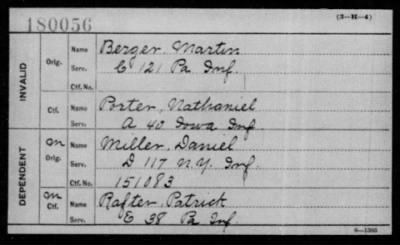 180056
(3-H-4)
INVALID
Orig.
Name
Berger, Martin
Serv.
C 121 Pa Inf.
Ctf. No.
Ctf.
Name
Porter, Nathaniel
Serv.
A 40 Iowa Inf
DEPENDENT
Orig.
Name
Miller, Daniel
Serv.
D 117 N.Y. Inf.
Ctf. No.
151083
Ctf.
Name
Rafter, Patrick
Serv.
E 38 Pa Inf